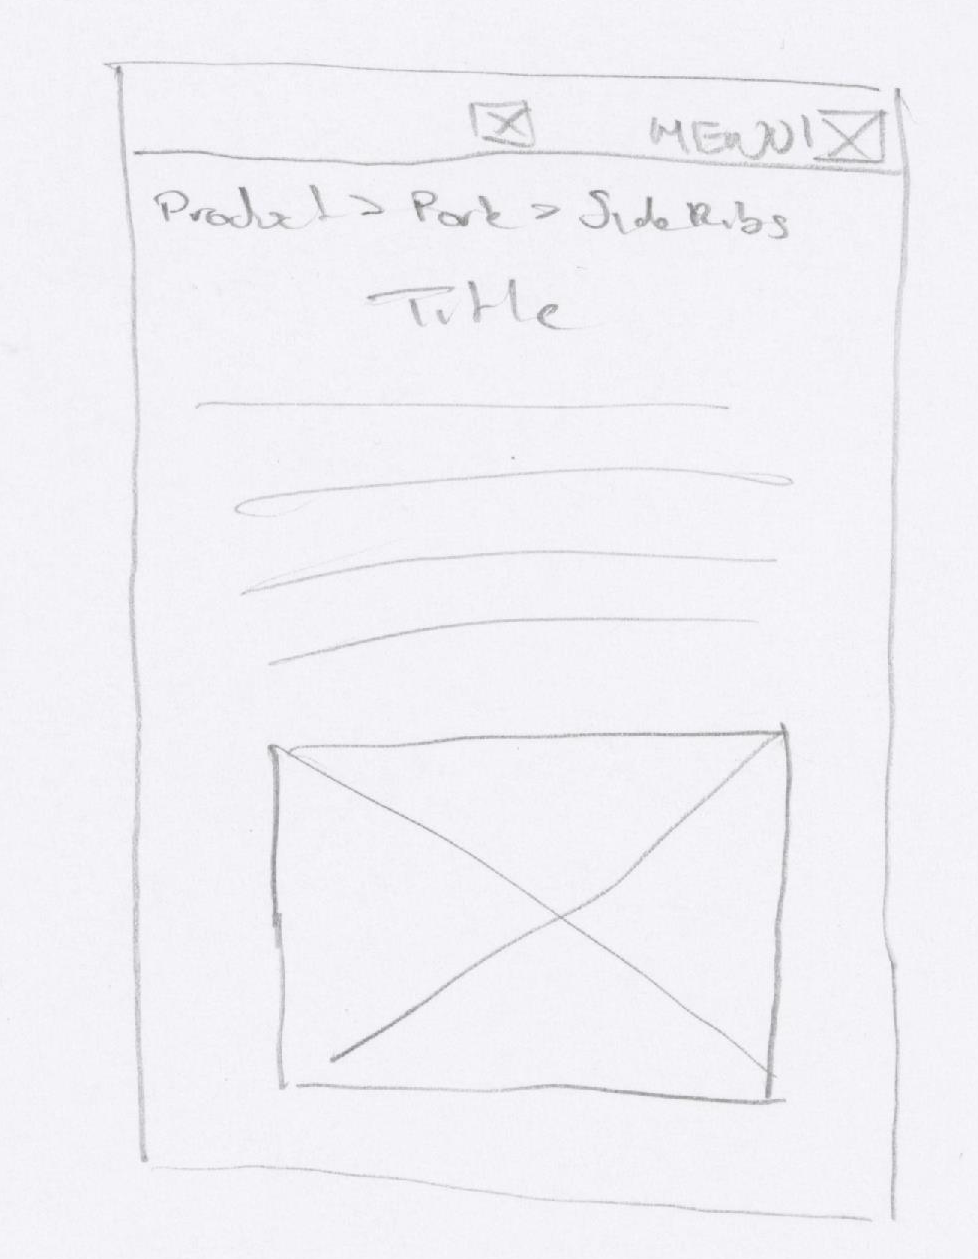 MENU
Product > Pork > Side Ribs
Title